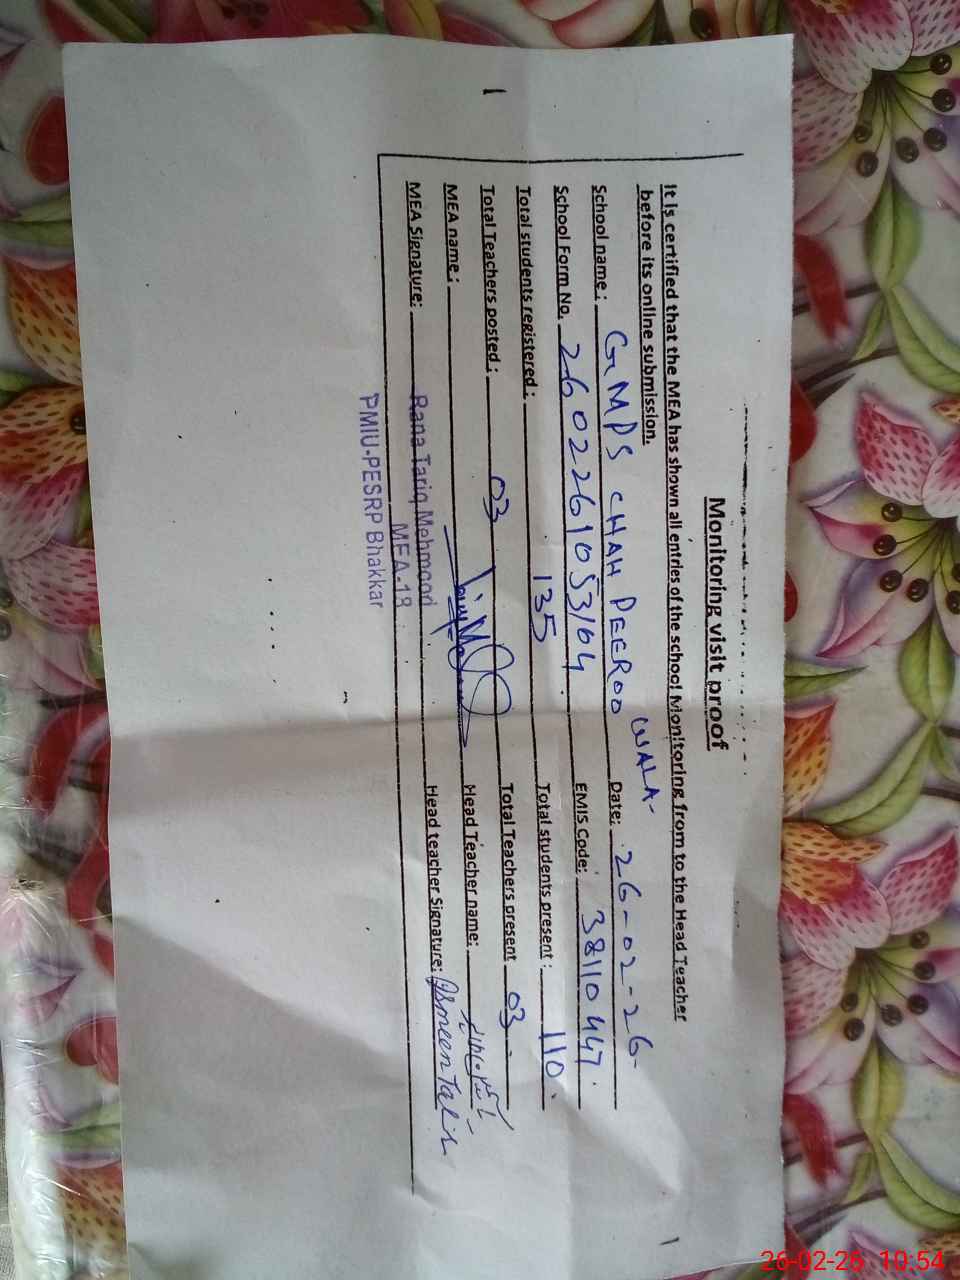 Monitoring visit proof
It is certified that the MEA has shown all entries of the school Monitoring from to the Head Teacher
before its online submission.
School name: GMPS CHAH PEEROO WALA- Date: 26-02-26-
School Form No. 2602261053164 EMIS Code: 38110447.
Total students registered: 135 Total students present: 110.
Total Teachers posted: 03 Total Teachers present 03-
MEA name: Head Teacher name:
MEA Signature: Rana Tariq Mehmood Head teacher Signature:
MEA-18
PMIU-PESRP Bhakkar
26-02-25 10:54